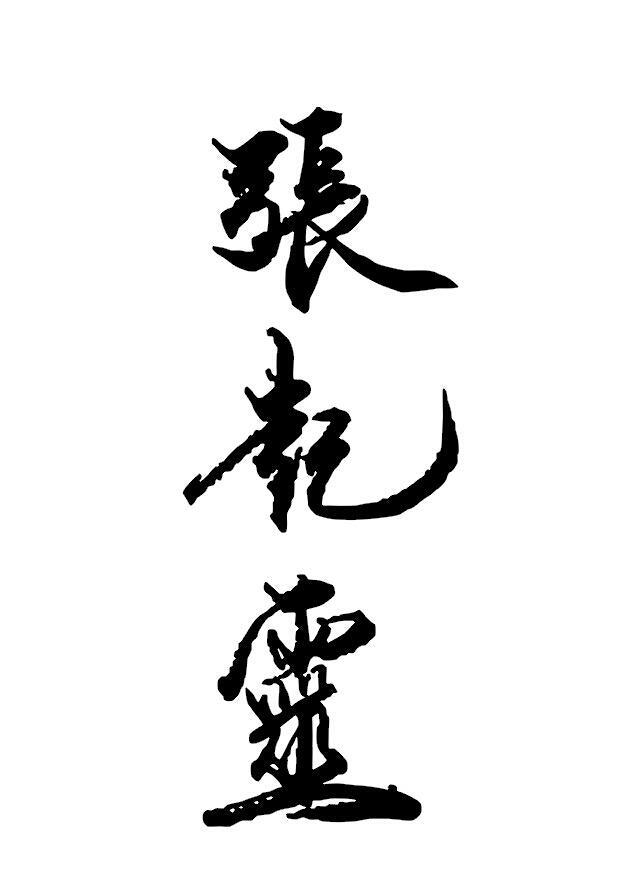 張乾靈